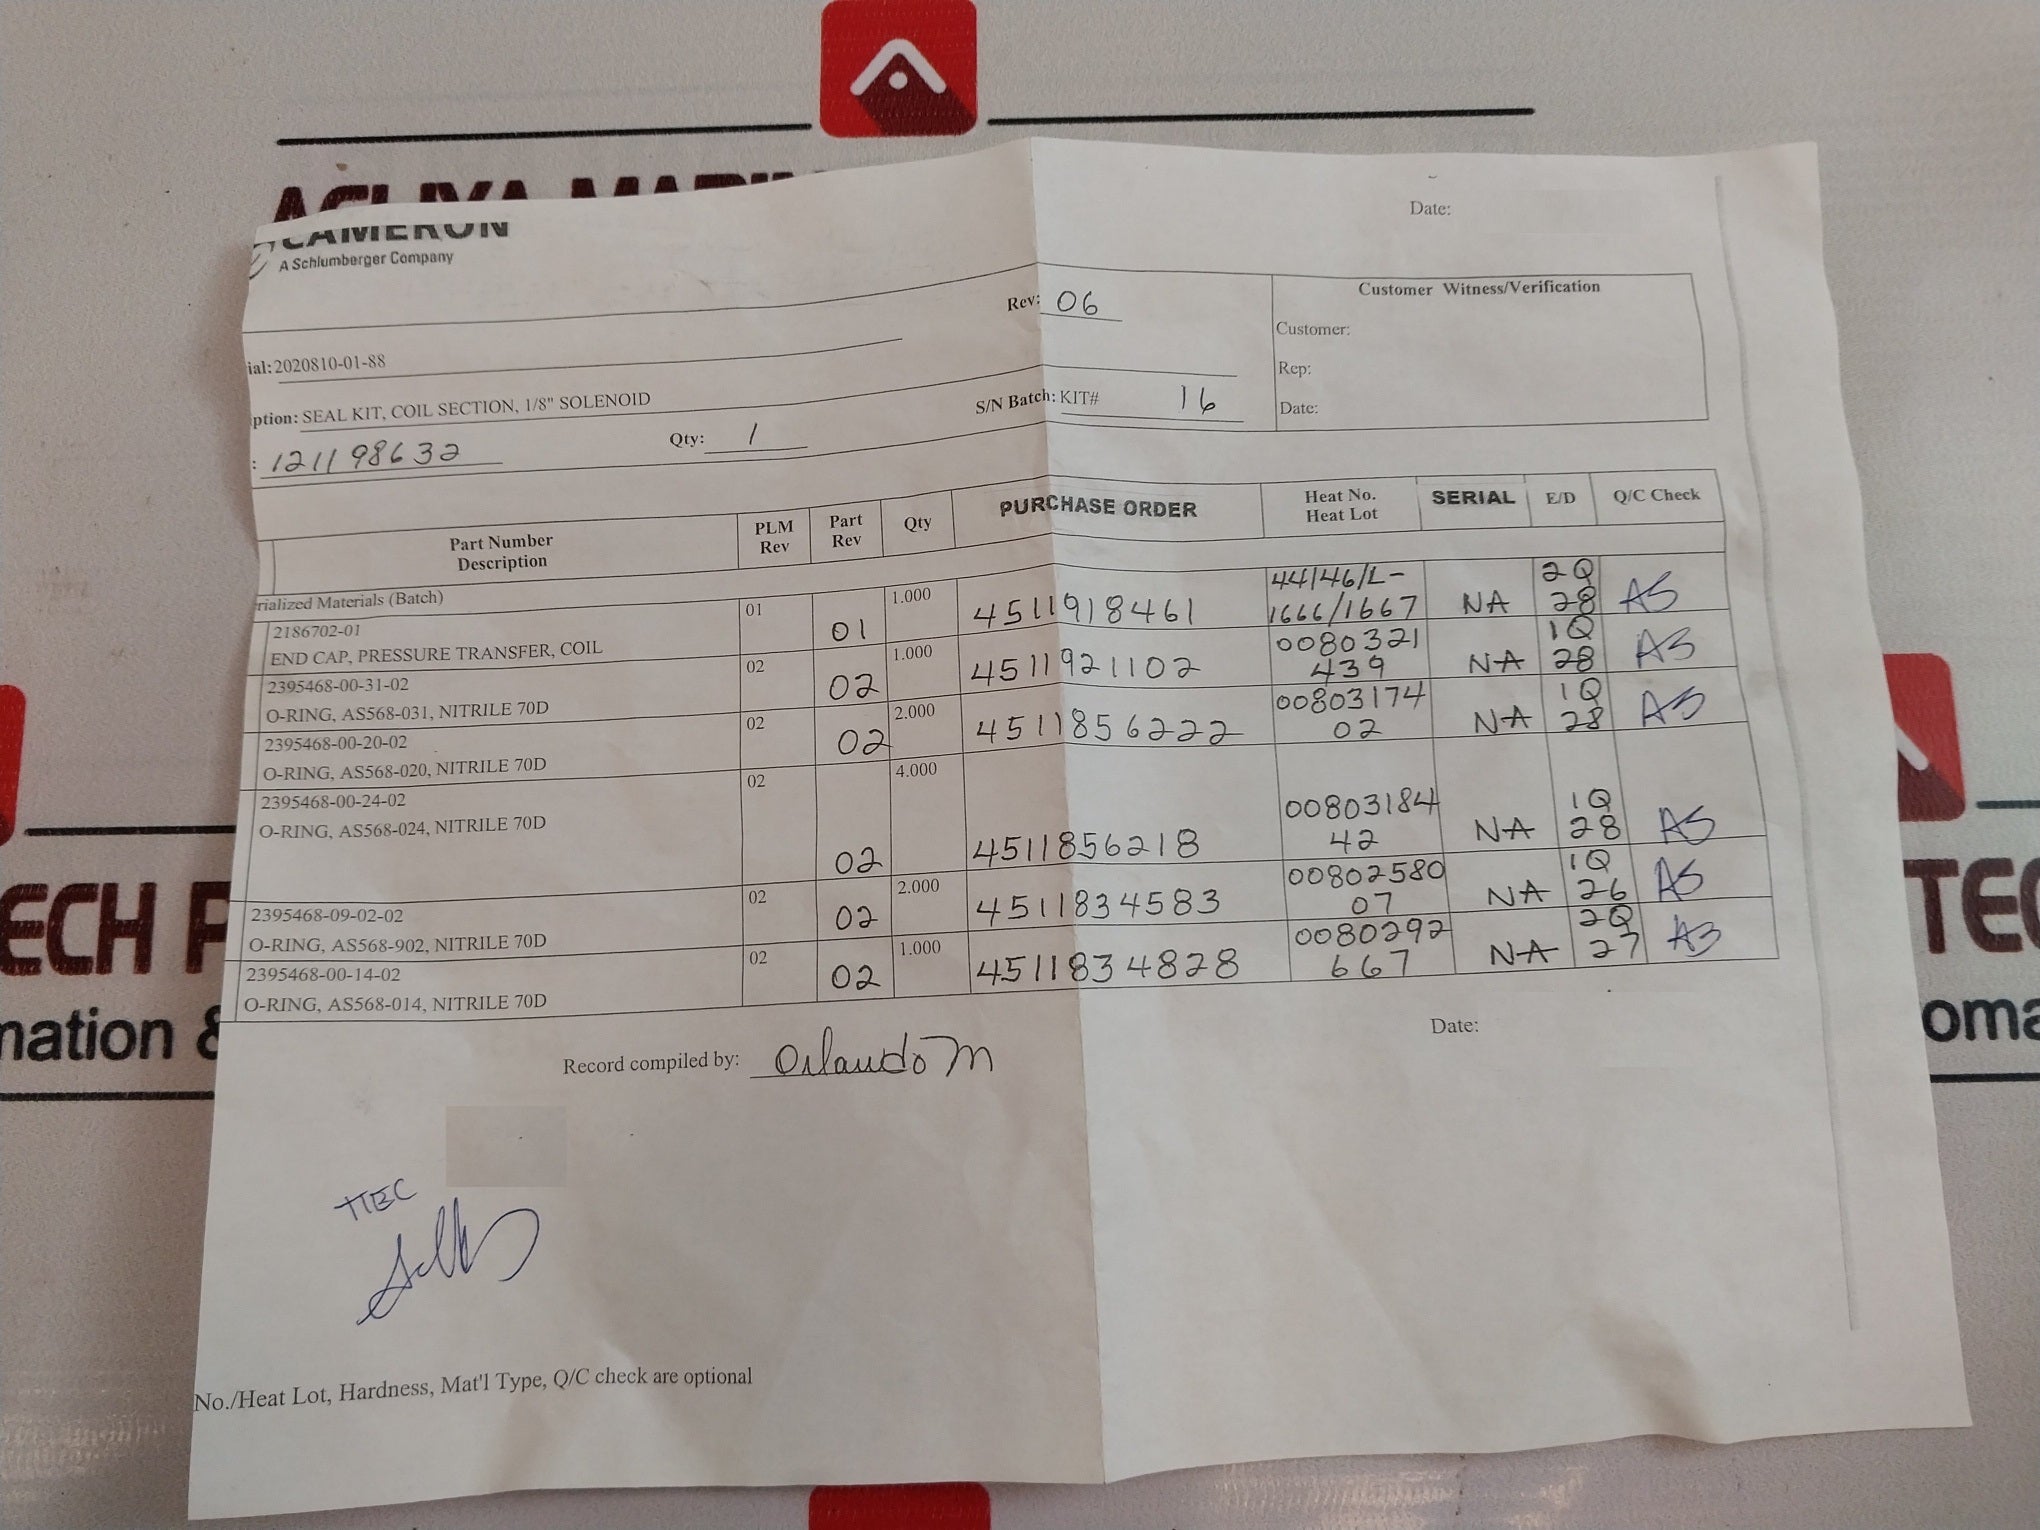 CAMERON
A Schlumberger Company
Date:
Rev: 06
Customer Witness/Verification
Customer:
Rep:
Date:
ial: 2020810-01-88
ption: SEAL KIT, COIL SECTION, 1/8" SOLENOID
S/N Batch: KIT# 16
: 121198632 Qty: 1
Part Number Description PLM Rev Part Rev Qty PURCHASE ORDER Heat No. Heat Lot SERIAL E/D Q/C Check
rialized Materials (Batch)
2186702-01 01 01 1.000 4511918461 44146/L-1666/1667 NA 2Q 28 AS
END CAP, PRESSURE TRANSFER, COIL
2395468-00-31-02 02 02 1.000 4511921102 0080321439 NA 1Q 28 AS
O-RING, AS568-031, NITRILE 70D
2395468-00-20-02 02 02 2.000 4511856222 0080317402 NA 1Q 28 AS
O-RING, AS568-020, NITRILE 70D
2395468-00-24-02 02 02 4.000 4511856218 0080318442 NA 1Q 28 AS
O-RING, AS568-024, NITRILE 70D
2395468-09-02-02 02 02 2.000 4511834583 0080258007 NA 1Q 26 AS
O-RING, AS568-902, NITRILE 70D
2395468-00-14-02 02 02 1.000 4511834828 0080292667 NA 2Q 27 AS
O-RING, AS568-014, NITRILE 70D
Record compiled by: Orlando M
Date:
No./Heat Lot, Hardness, Mat'l Type, Q/C check are optional
ECH P
TEC
mation &
oma